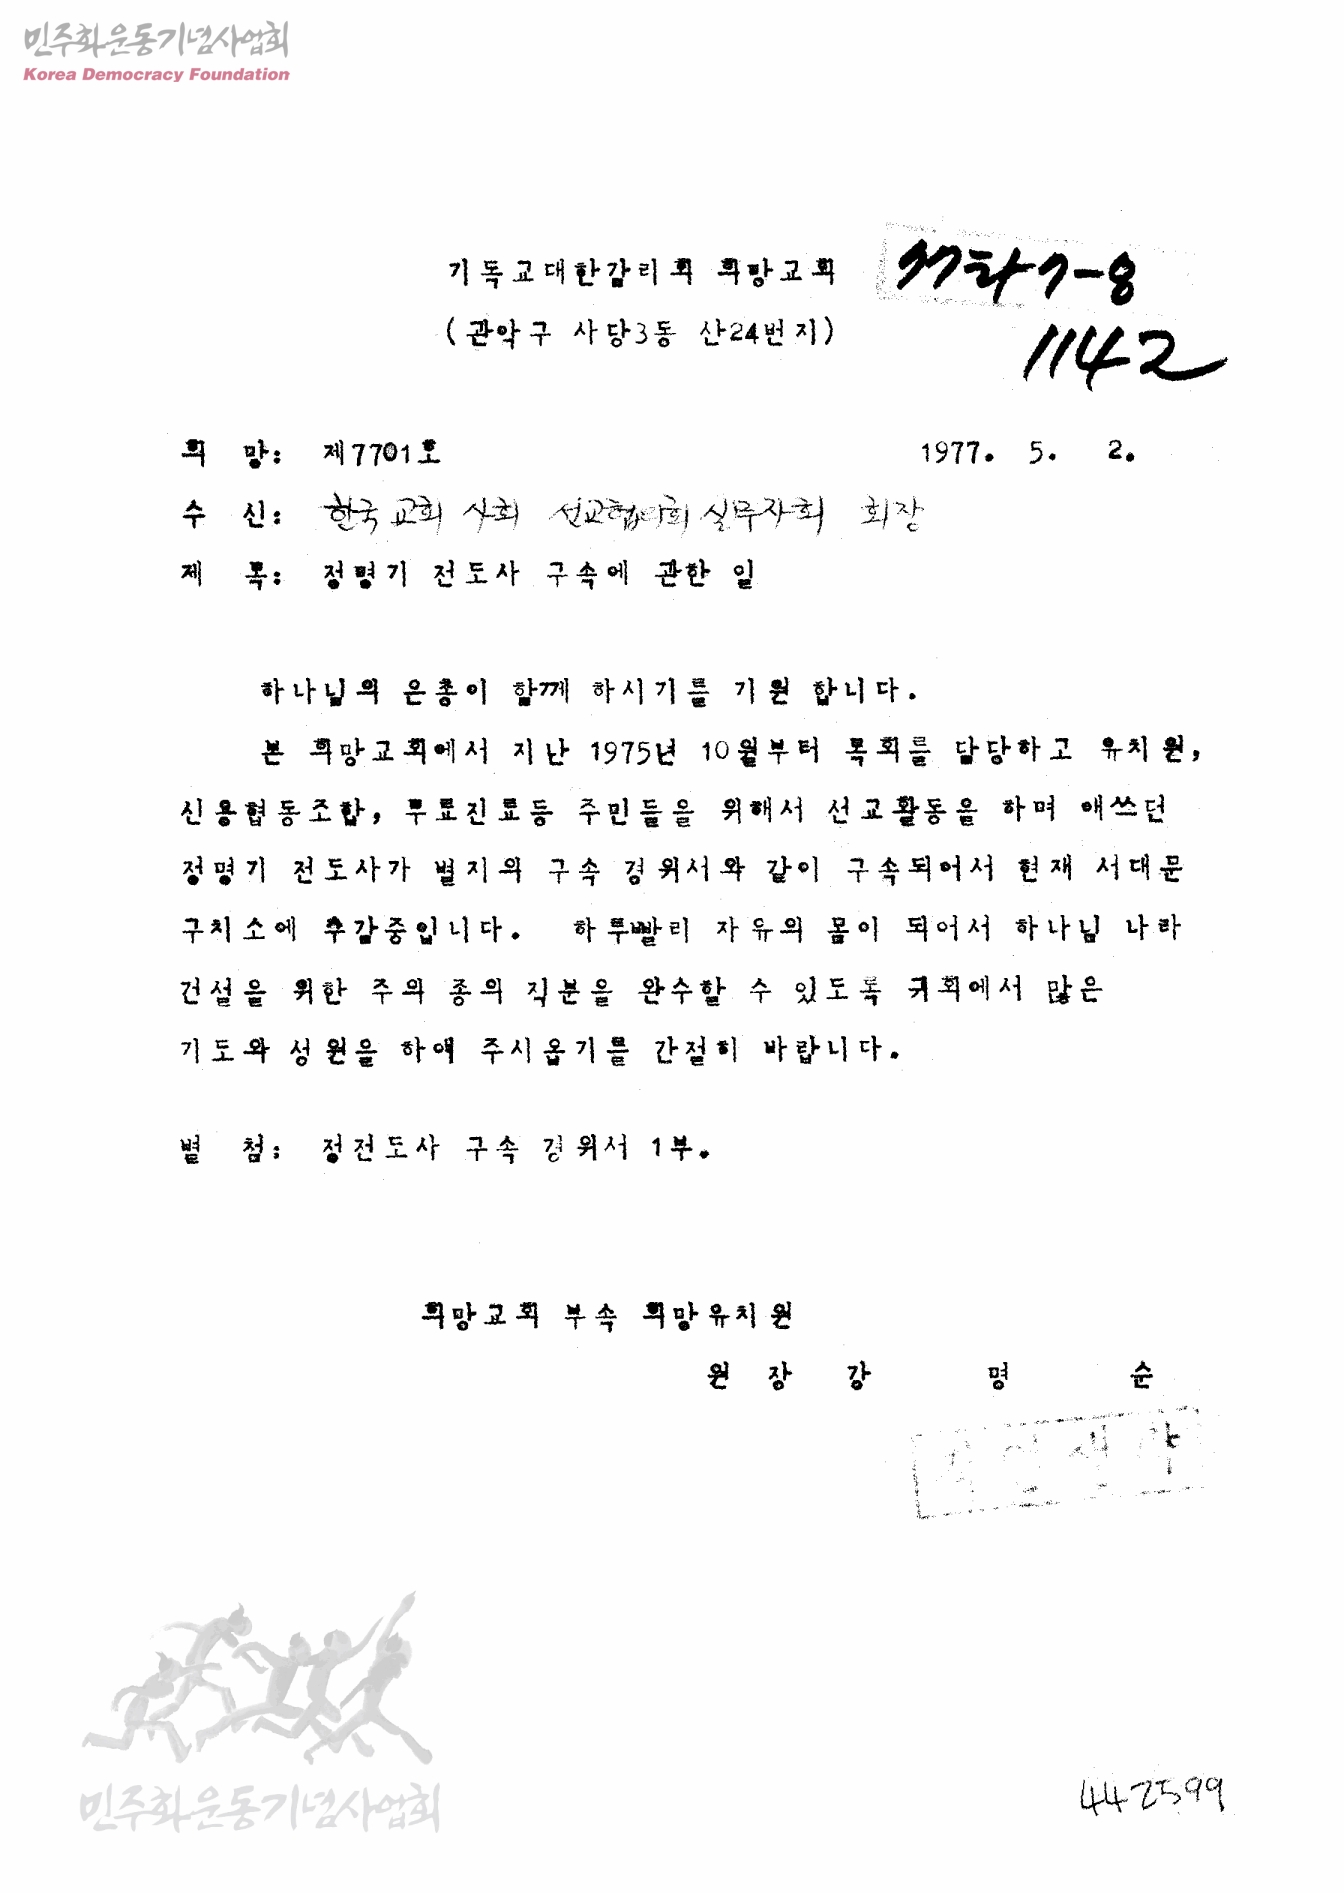 민주화운동기념사업회
Korea Democracy Foundation
기독교대한감리회 희망교회
77하7-8
(관악구 사당3동 산24번지)
1142
희 망: 제7701호 1977. 5. 2.
수 신: 한국 교회 사회 선교협의회 실무자회 회장
제 목: 정명기 전도사 구속에 관한 일
하나님의 은총이 함께 하시기를 기원 합니다.
본 희망교회에서 지난 1975년 10월부터 목회를 담당하고 유치원,
신용협동조합, 무료진료등 주민들을 위해서 선교활동을 하며 애쓰던
정명기 전도사가 별지의 구속 경위서와 같이 구속되어서 현재 서대문
구치소에 수감중입니다. 하루빨리 자유의 몸이 되어서 하나님 나라
건설을 위한 주의 종의 직분을 완수할 수 있도록 귀회에서 많은
기도와 성원을 하여 주시옵기를 간절히 바랍니다.
별 첨: 정전도사 구속 경위서 1부.
희망교회 부속 희망유치원
원 장 강 명 순
민주화운동기념사업회
442599